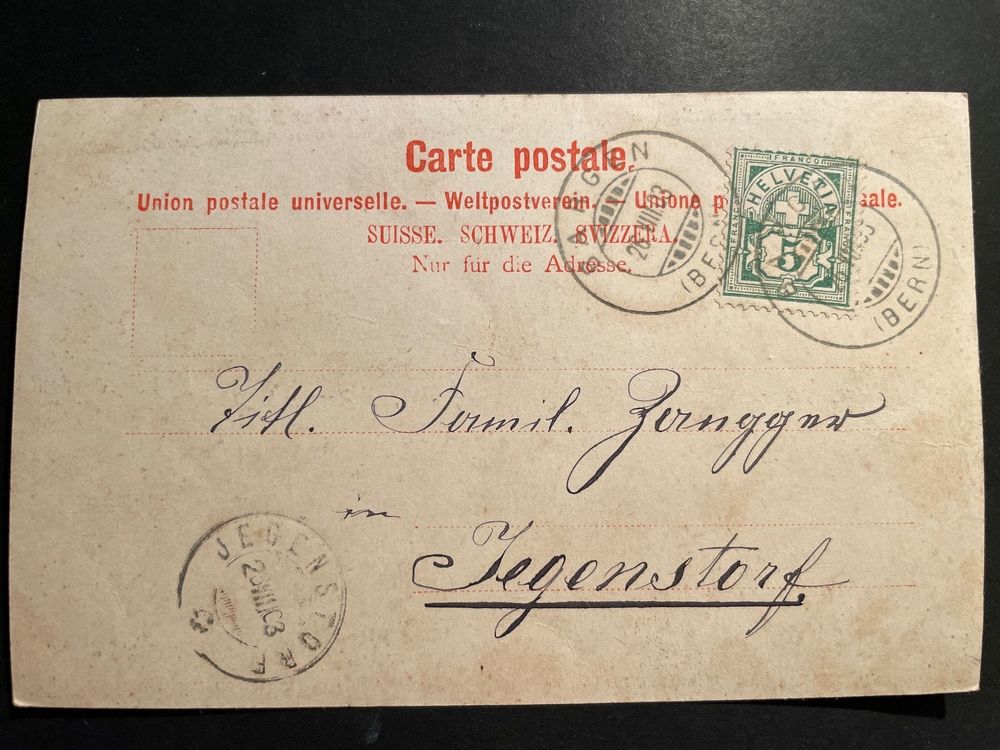 Carte postale.
Union postale universelle. — Weltpostverein. — Unione p sale.
SUISSE. SCHWEIZ. SVIZZERA.
Nur für die Adresse.
BARGEN
26.VIII.03
(BERN)
FRANCO
HELVETIA
5
(BERN)
Titl. Famil. Zangger
in
Jegenstorf.
JEGENSTORF
VIII.03